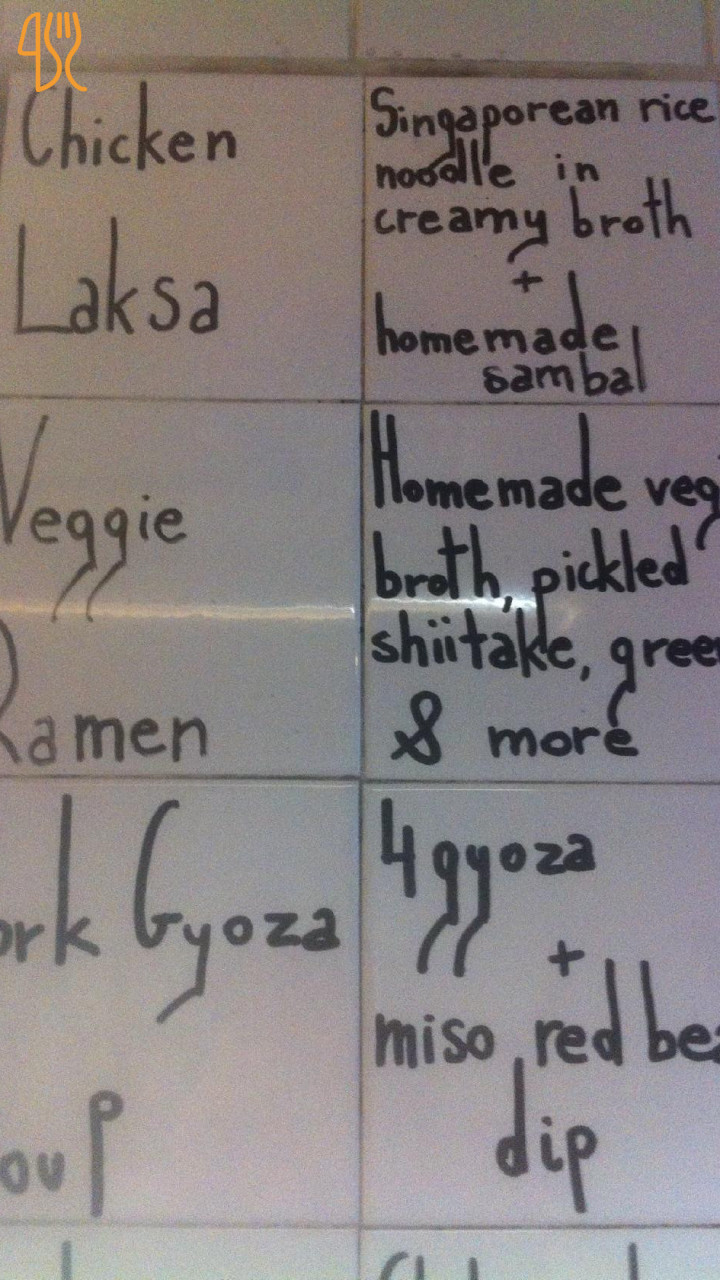 Chicken
Laksa
Singaporean rice
noodle in
creamy broth
+
homemade
sambal
Veggie
Ramen
Homemade veg
broth, pickled
shiitake, gree
& more
ork Gyoza
oup
4 gyoza
+
miso, red bea
dip